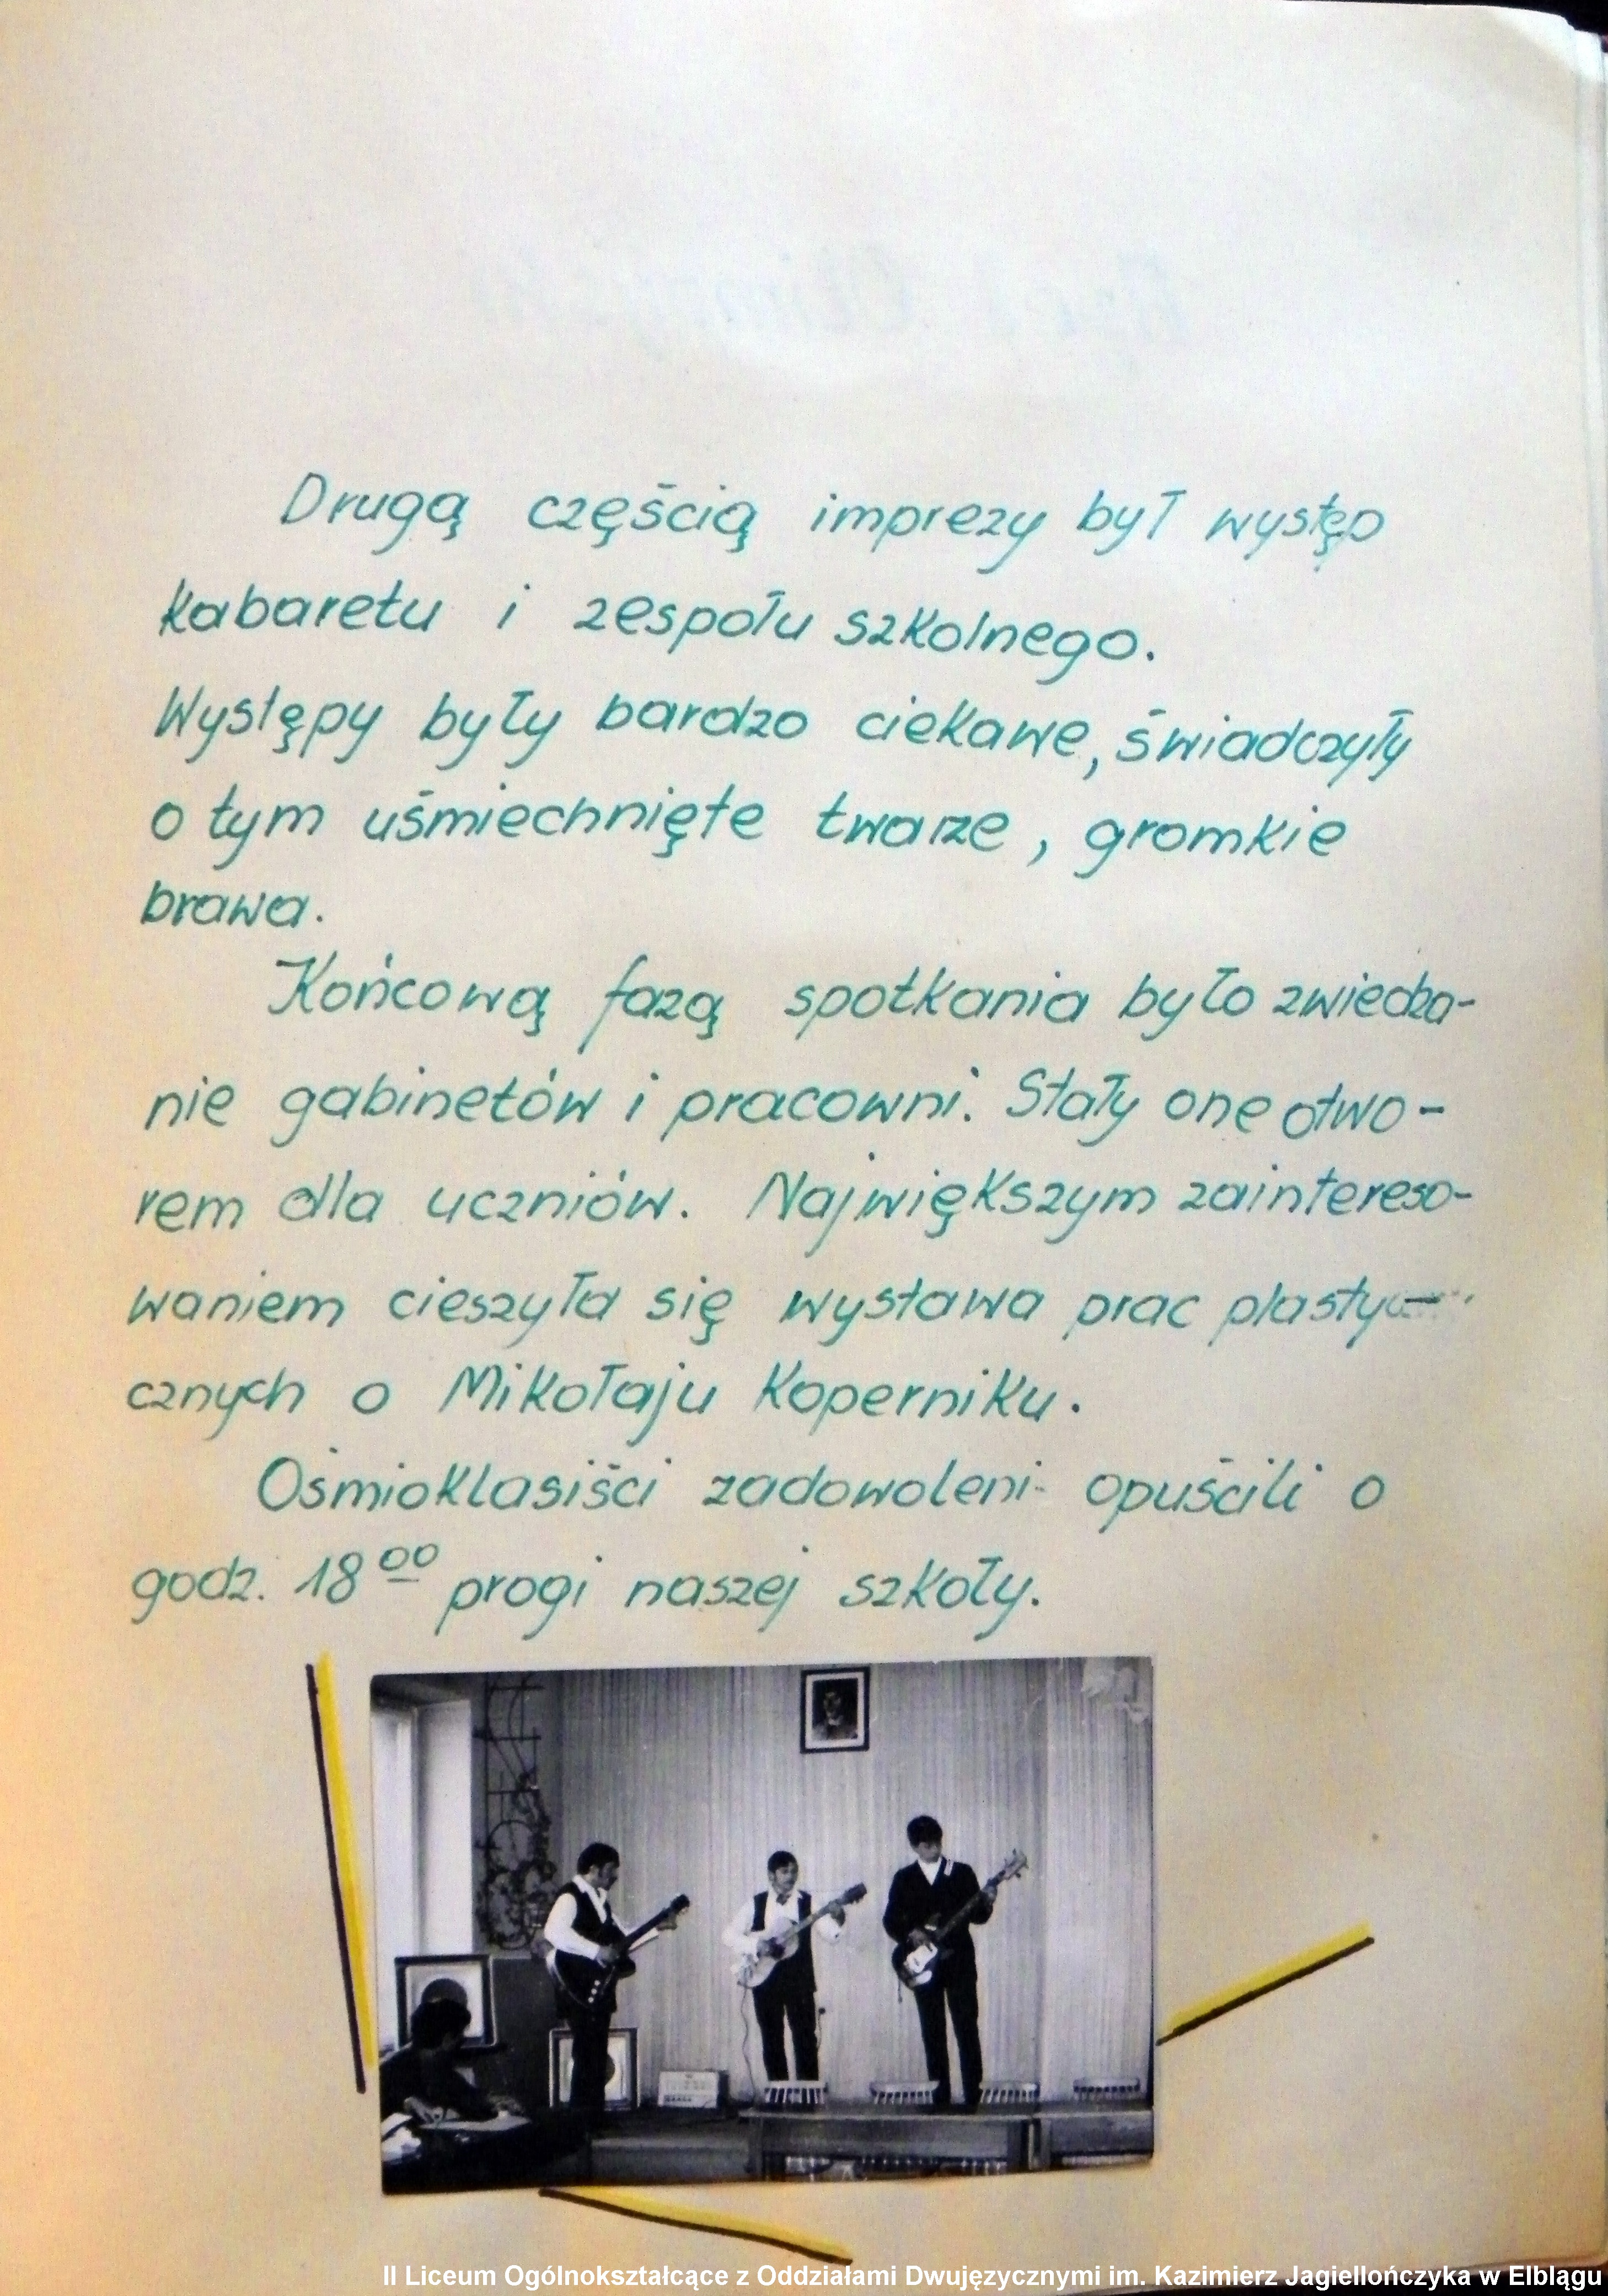 Drugą częścią imprezy był występ
kabaretu i zespołu szkolnego.
Występy były bardzo ciekawe, świadczyły
o tym uśmiechnięte twarze, gromkie
brawa.
Końcową fazą spotkania było zwiedza-
nie gabinetów i pracowni. Stały one otwo-
rem dla uczniów. Największym zaintereso-
waniem cieszyła się wystawa prac plasty-
cznych o Mikołaju Koperniku.
Ośmioklasiści zadowoleni opuścili o
godz. 18⁰⁰ progi naszej szkoły.
II Liceum Ogólnokształcące z Oddziałami Dwujęzycznymi im. Kazimierz Jagiellończyka w Elblągu